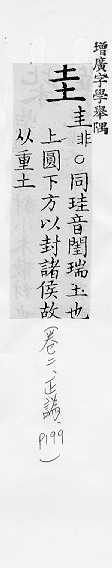 增廣字學舉隅
圭
圭非○同珪音閨瑞玉也
上圓下方以封諸侯故
从重土
(卷二、正譌、P199)